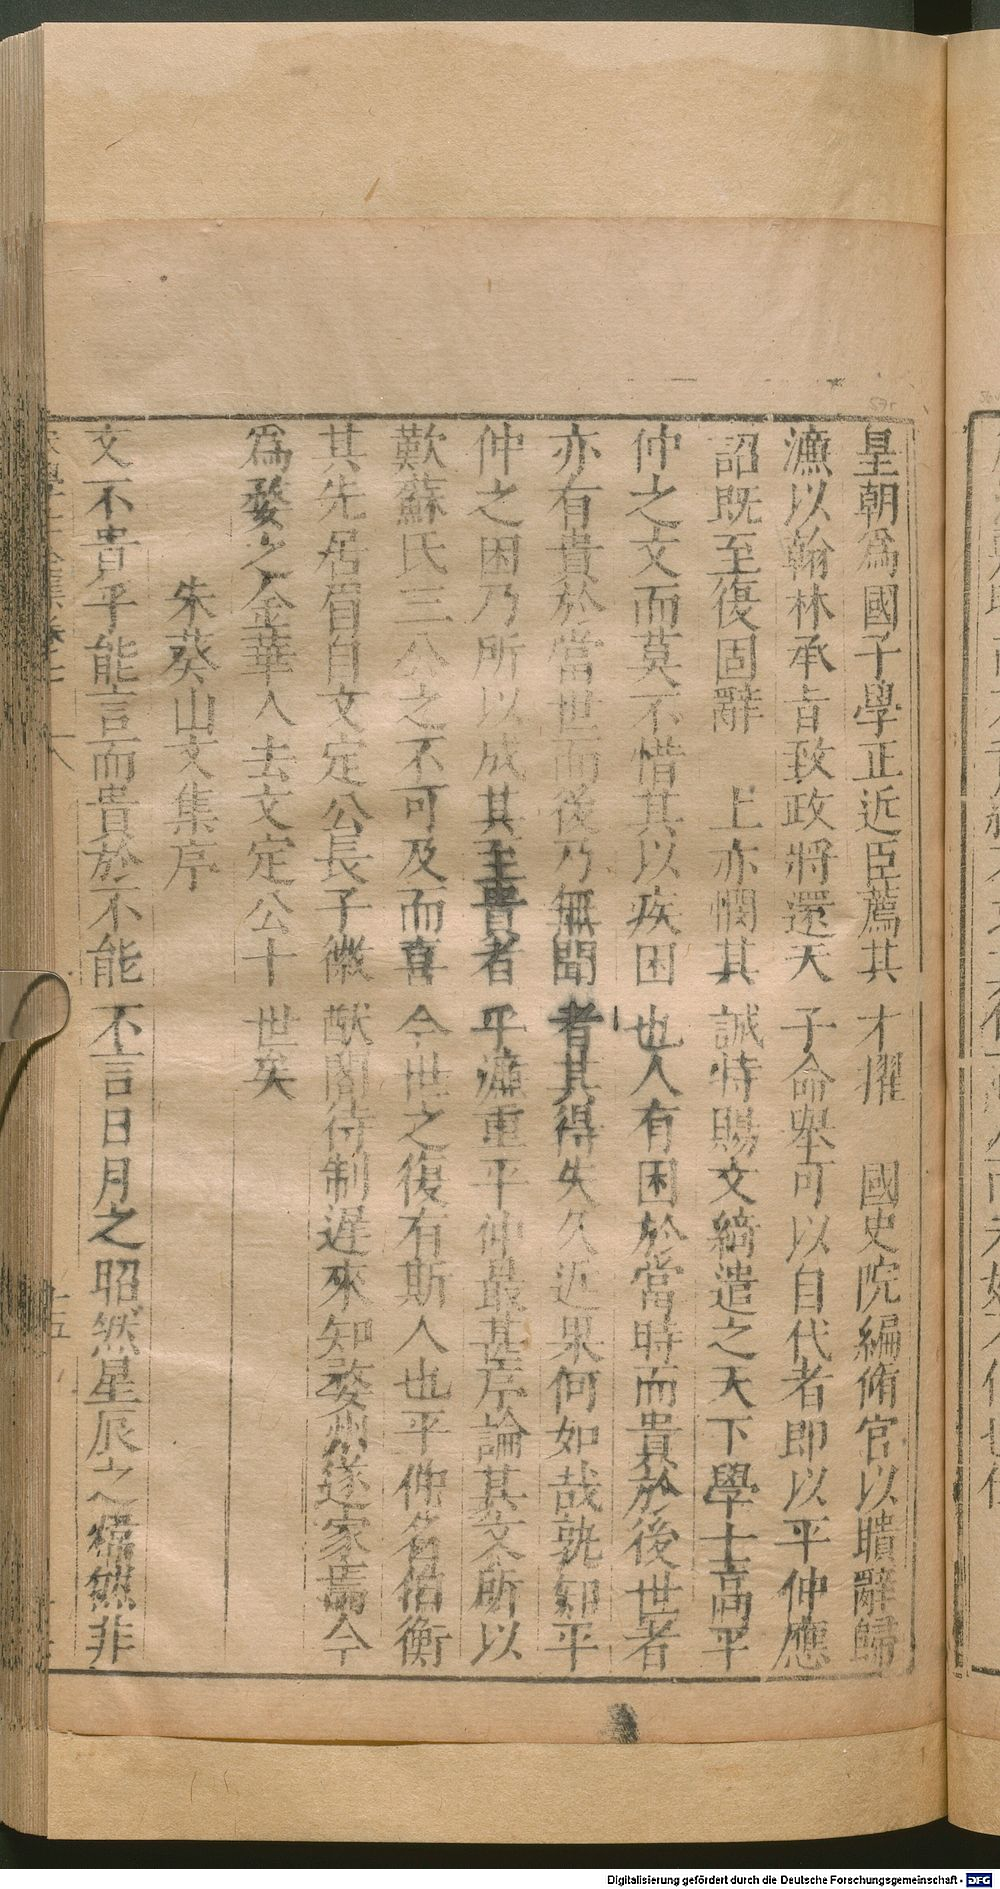 皇朝爲國子學正近臣薦其才擢　國史院編脩官以瞶辭歸
濂以翰林承旨致政將還天子命舉可以自代者即以平仲應
詔既至復固辭　上亦憫其誠特賜文綺遣之天下學士高平
仲之文而莫不惜其以疾困也人有困於當時而貴於後世者
亦有貴於當世而後乃無聞者其得失久近果何如哉孰知平
仲之困乃所以成其至貴者乎濂重平仲最甚序論其文所以
歎蘇氏三公之不可及而喜今世之復有斯人也平仲名伯衡
其先居眉自文定公長子徽猷閣待制遲來知婺州遂家焉今
爲婺之金華人去文定公十世矣
朱葵山文集序
文不貴乎能言而貴於不能不言日月之昭然星辰之煒然非
十五
Digitalisierung gefördert durch die Deutsche Forschungsgemeinschaft - DFG